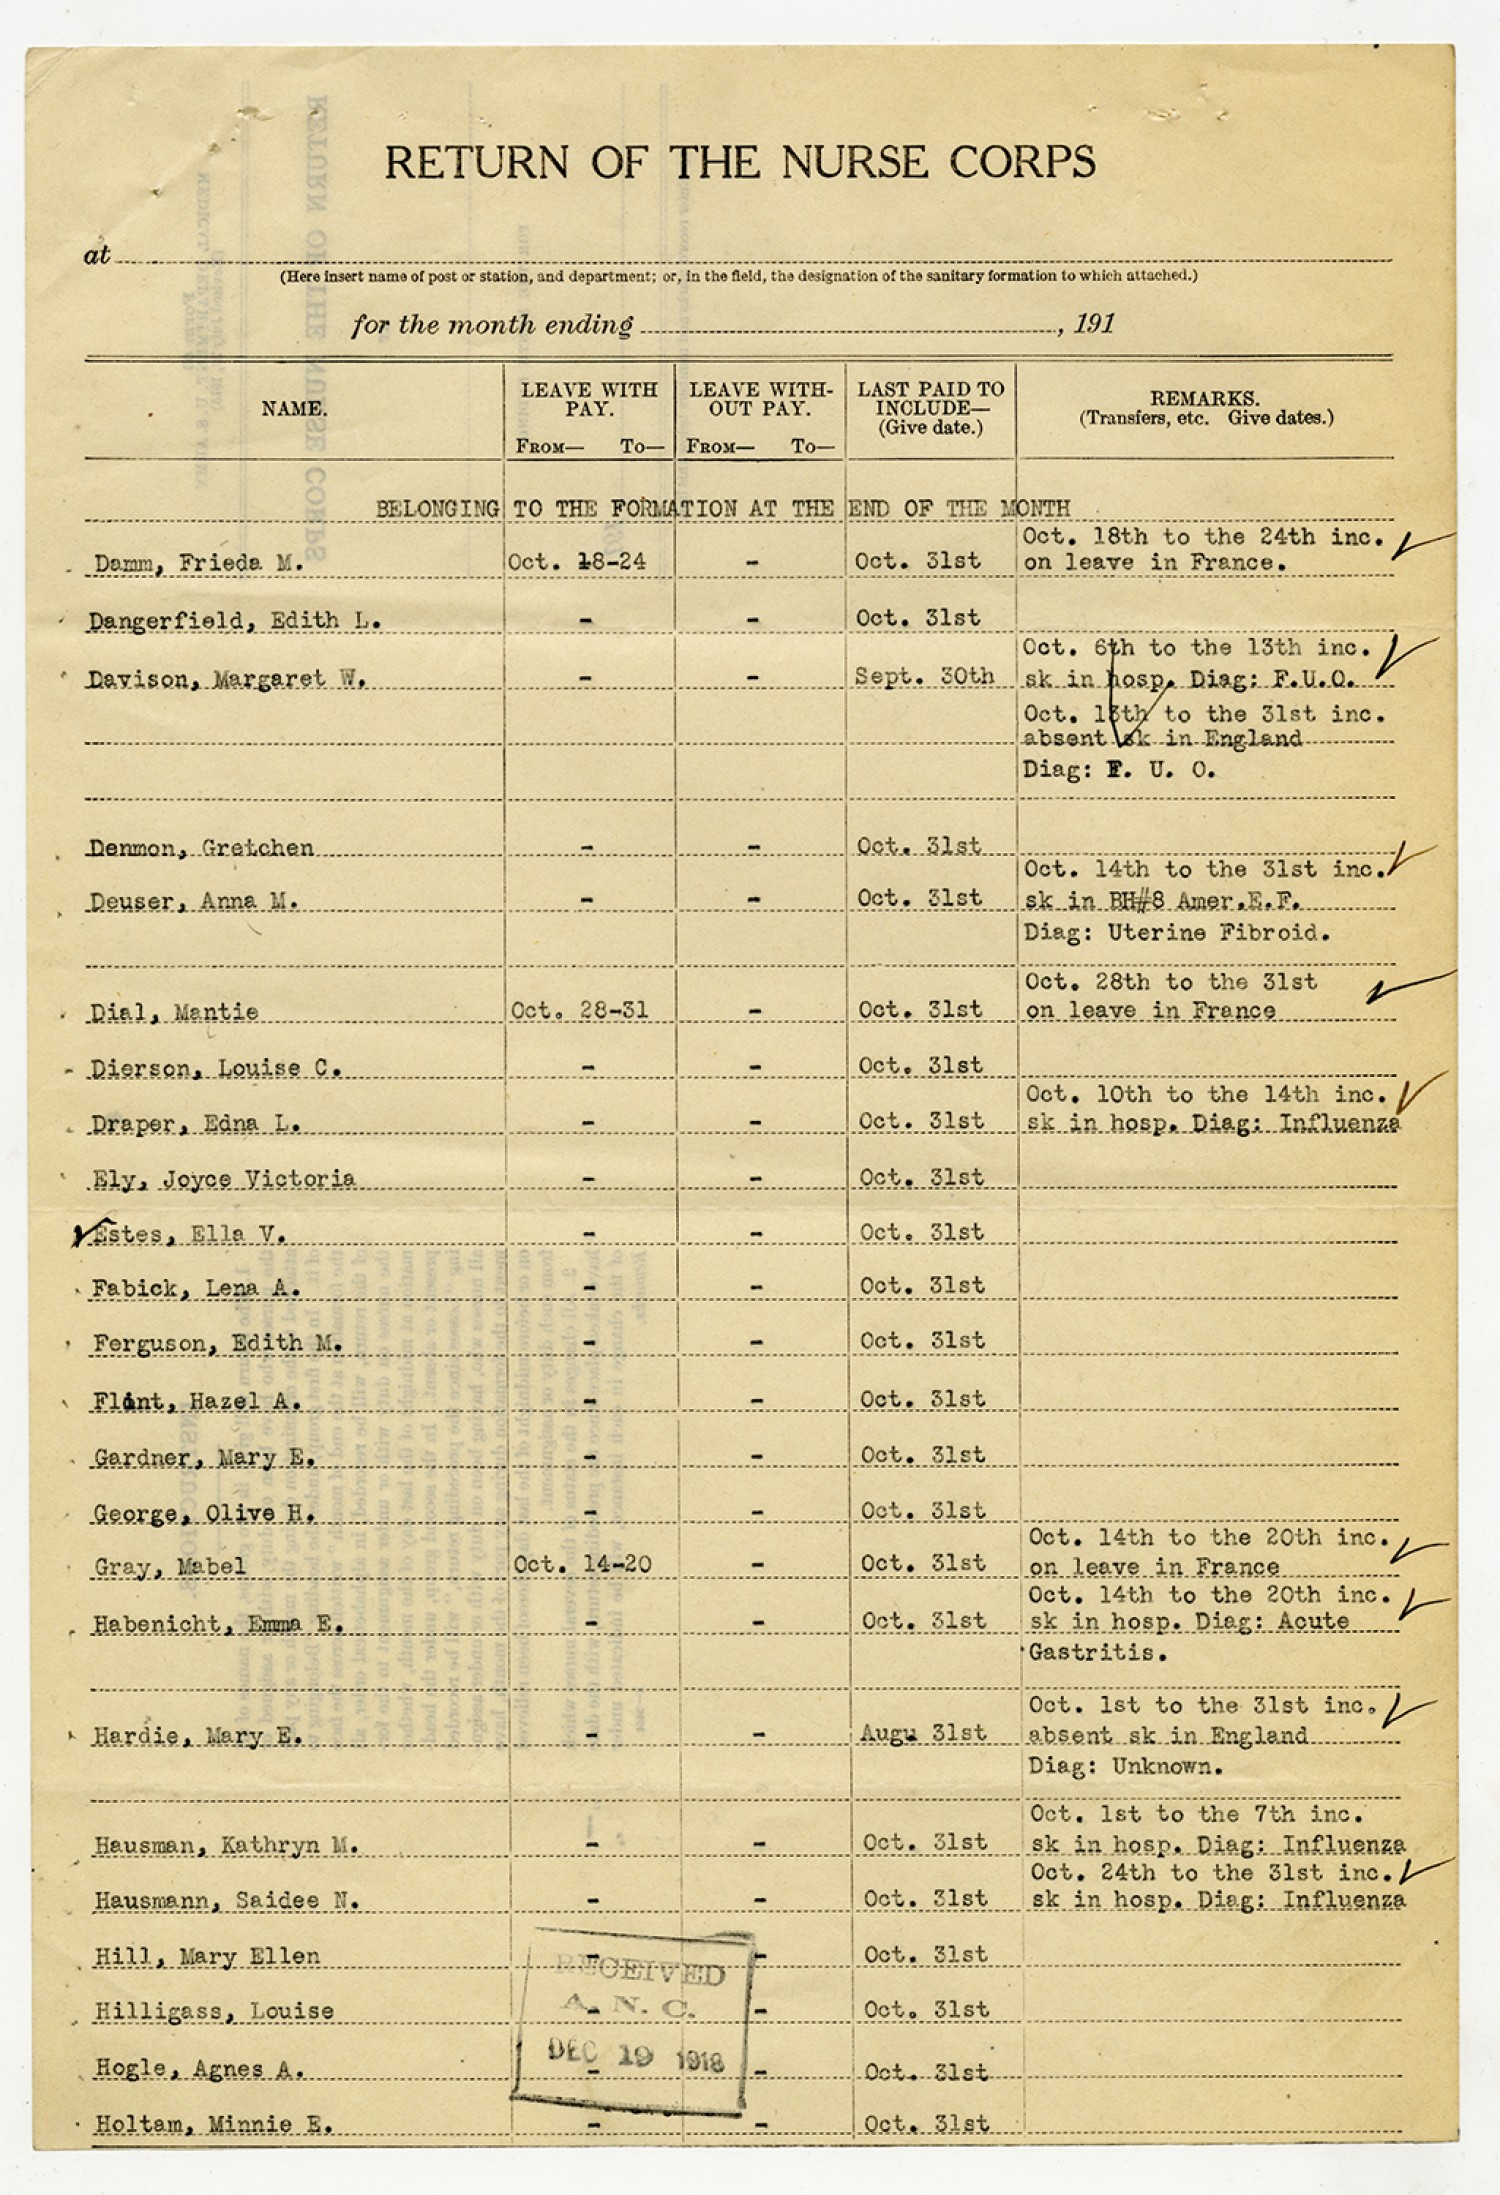 RETURN OF THE NURSE CORPS
at
(Here insert name of post or station, and department; or, in the field, the designation of the sanitary formation to which attached.)
for the month ending , 191
NAME. LEAVE WITH PAY. FROM— TO— LEAVE WITH-OUT PAY. FROM— TO— LAST PAID TO INCLUDE— (Give date.) REMARKS. (Transfers, etc. Give dates.)
BELONGING TO THE FORMATION AT THE END OF THE MONTH
Oct. 18th to the 24th inc.
Damm, Frieda M. Oct. 18-24 - Oct. 31st on leave in France.
Dangerfield, Edith L. - - Oct. 31st
Oct. 6th to the 13th inc.
Davison, Margaret W. - - Sept. 30th sk in hosp. Diag: F.U.O.
Oct. 13th to the 31st inc.
absent sk in England
Diag: F. U. O.
Denmon, Gretchen - - Oct. 31st
Oct. 14th to the 31st inc.
Deuser, Anna M. - - Oct. 31st sk in BH#8 Amer.E.F.
Diag: Uterine Fibroid.
Oct. 28th to the 31st
Dial, Mantie Oct. 28-31 - Oct. 31st on leave in France
Dierson, Louise C. - - Oct. 31st
Oct. 10th to the 14th inc.
Draper, Edna L. - - Oct. 31st sk in hosp. Diag: Influenza
Ely, Joyce Victoria - - Oct. 31st
Estes, Ella V. - - Oct. 31st
Fabick, Lena A. - - Oct. 31st
Ferguson, Edith M. - - Oct. 31st
Flint, Hazel A. - - Oct. 31st
Gardner, Mary E. - - Oct. 31st
George, Olive H. - - Oct. 31st
Oct. 14th to the 20th inc.
Gray, Mabel Oct. 14-20 - Oct. 31st on leave in France
Oct. 14th to the 20th inc.
Habenicht, Emma E. - - Oct. 31st sk in hosp. Diag: Acute
Gastritis.
Oct. 1st to the 31st inc.
Hardie, Mary E. - - Augu 31st absent sk in England
Diag: Unknown.
Oct. 1st to the 7th inc.
Hausman, Kathryn M. - - Oct. 31st sk in hosp. Diag: Influenza
Oct. 24th to the 31st inc.
Hausmann, Saidee N. - - Oct. 31st sk in hosp. Diag: Influenza
Hill, Mary Ellen - - Oct. 31st
RECEIVED
Hilligass, Louise - - Oct. 31st
A. N. C.
DEC 19 1918
Hogle, Agnes A. - - Oct. 31st
Holtam, Minnie E. - - Oct. 31st